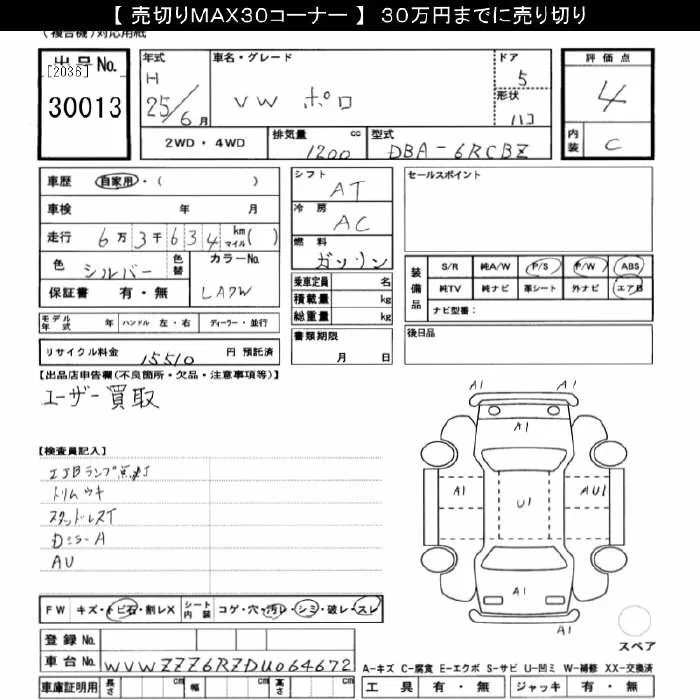 【 売切りMAX30コーナー 】 30万円までに売り切り
(複合機)対応用紙
出品No.
[2036]
30013
年式
H
25/6月
車名・グレード
VW ポロ
ドア
5
形状
ハコ
評価点
4
内装
C
2WD・4WD
排気量 cc
1200
型式
DBA-6RCBZ
車歴 自家用・( )
車検 年 月
走行 6万3千634 km マイル( )
色 シルバー
色替
カラーNo.
LA7W
保証書 有・無
シフト
AT
冷房
AC
燃料
ガソリン
乗車定員 名
積載量 kg
総重量 kg
書類期限
月 日
セールスポイント
装備品
S/R 純A/W P/S P/W ABS
純TV 純ナビ 革シート 外ナビ エアB
ナビ型番:
後日品
モデル年式 年 ハンドル 左・右 ディーラー・並行
リサイクル料金 15510 円 預託済
【出品店申告欄(不良箇所・欠品・注意事項等)】
ユーザー買取
【検査員記入】
トリムウキ
スタッドレスT
AU
A1 A1
A1
A1 U1 AU1
A1
A1
スペア
FW キズ・トビ石・割レX シート内装 コゲ・穴・汚レ・シミ・破レ・スレ
登録No.
車台No. WVWZZZ6RZDU064672
A-キズ C-腐食 E-エクボ S-サビ U-凹ミ W-補修 XX-交換済
車庫証明用 長さ cm 幅 cm 高さ cm
工具 有・無 ジャッキ 有・無